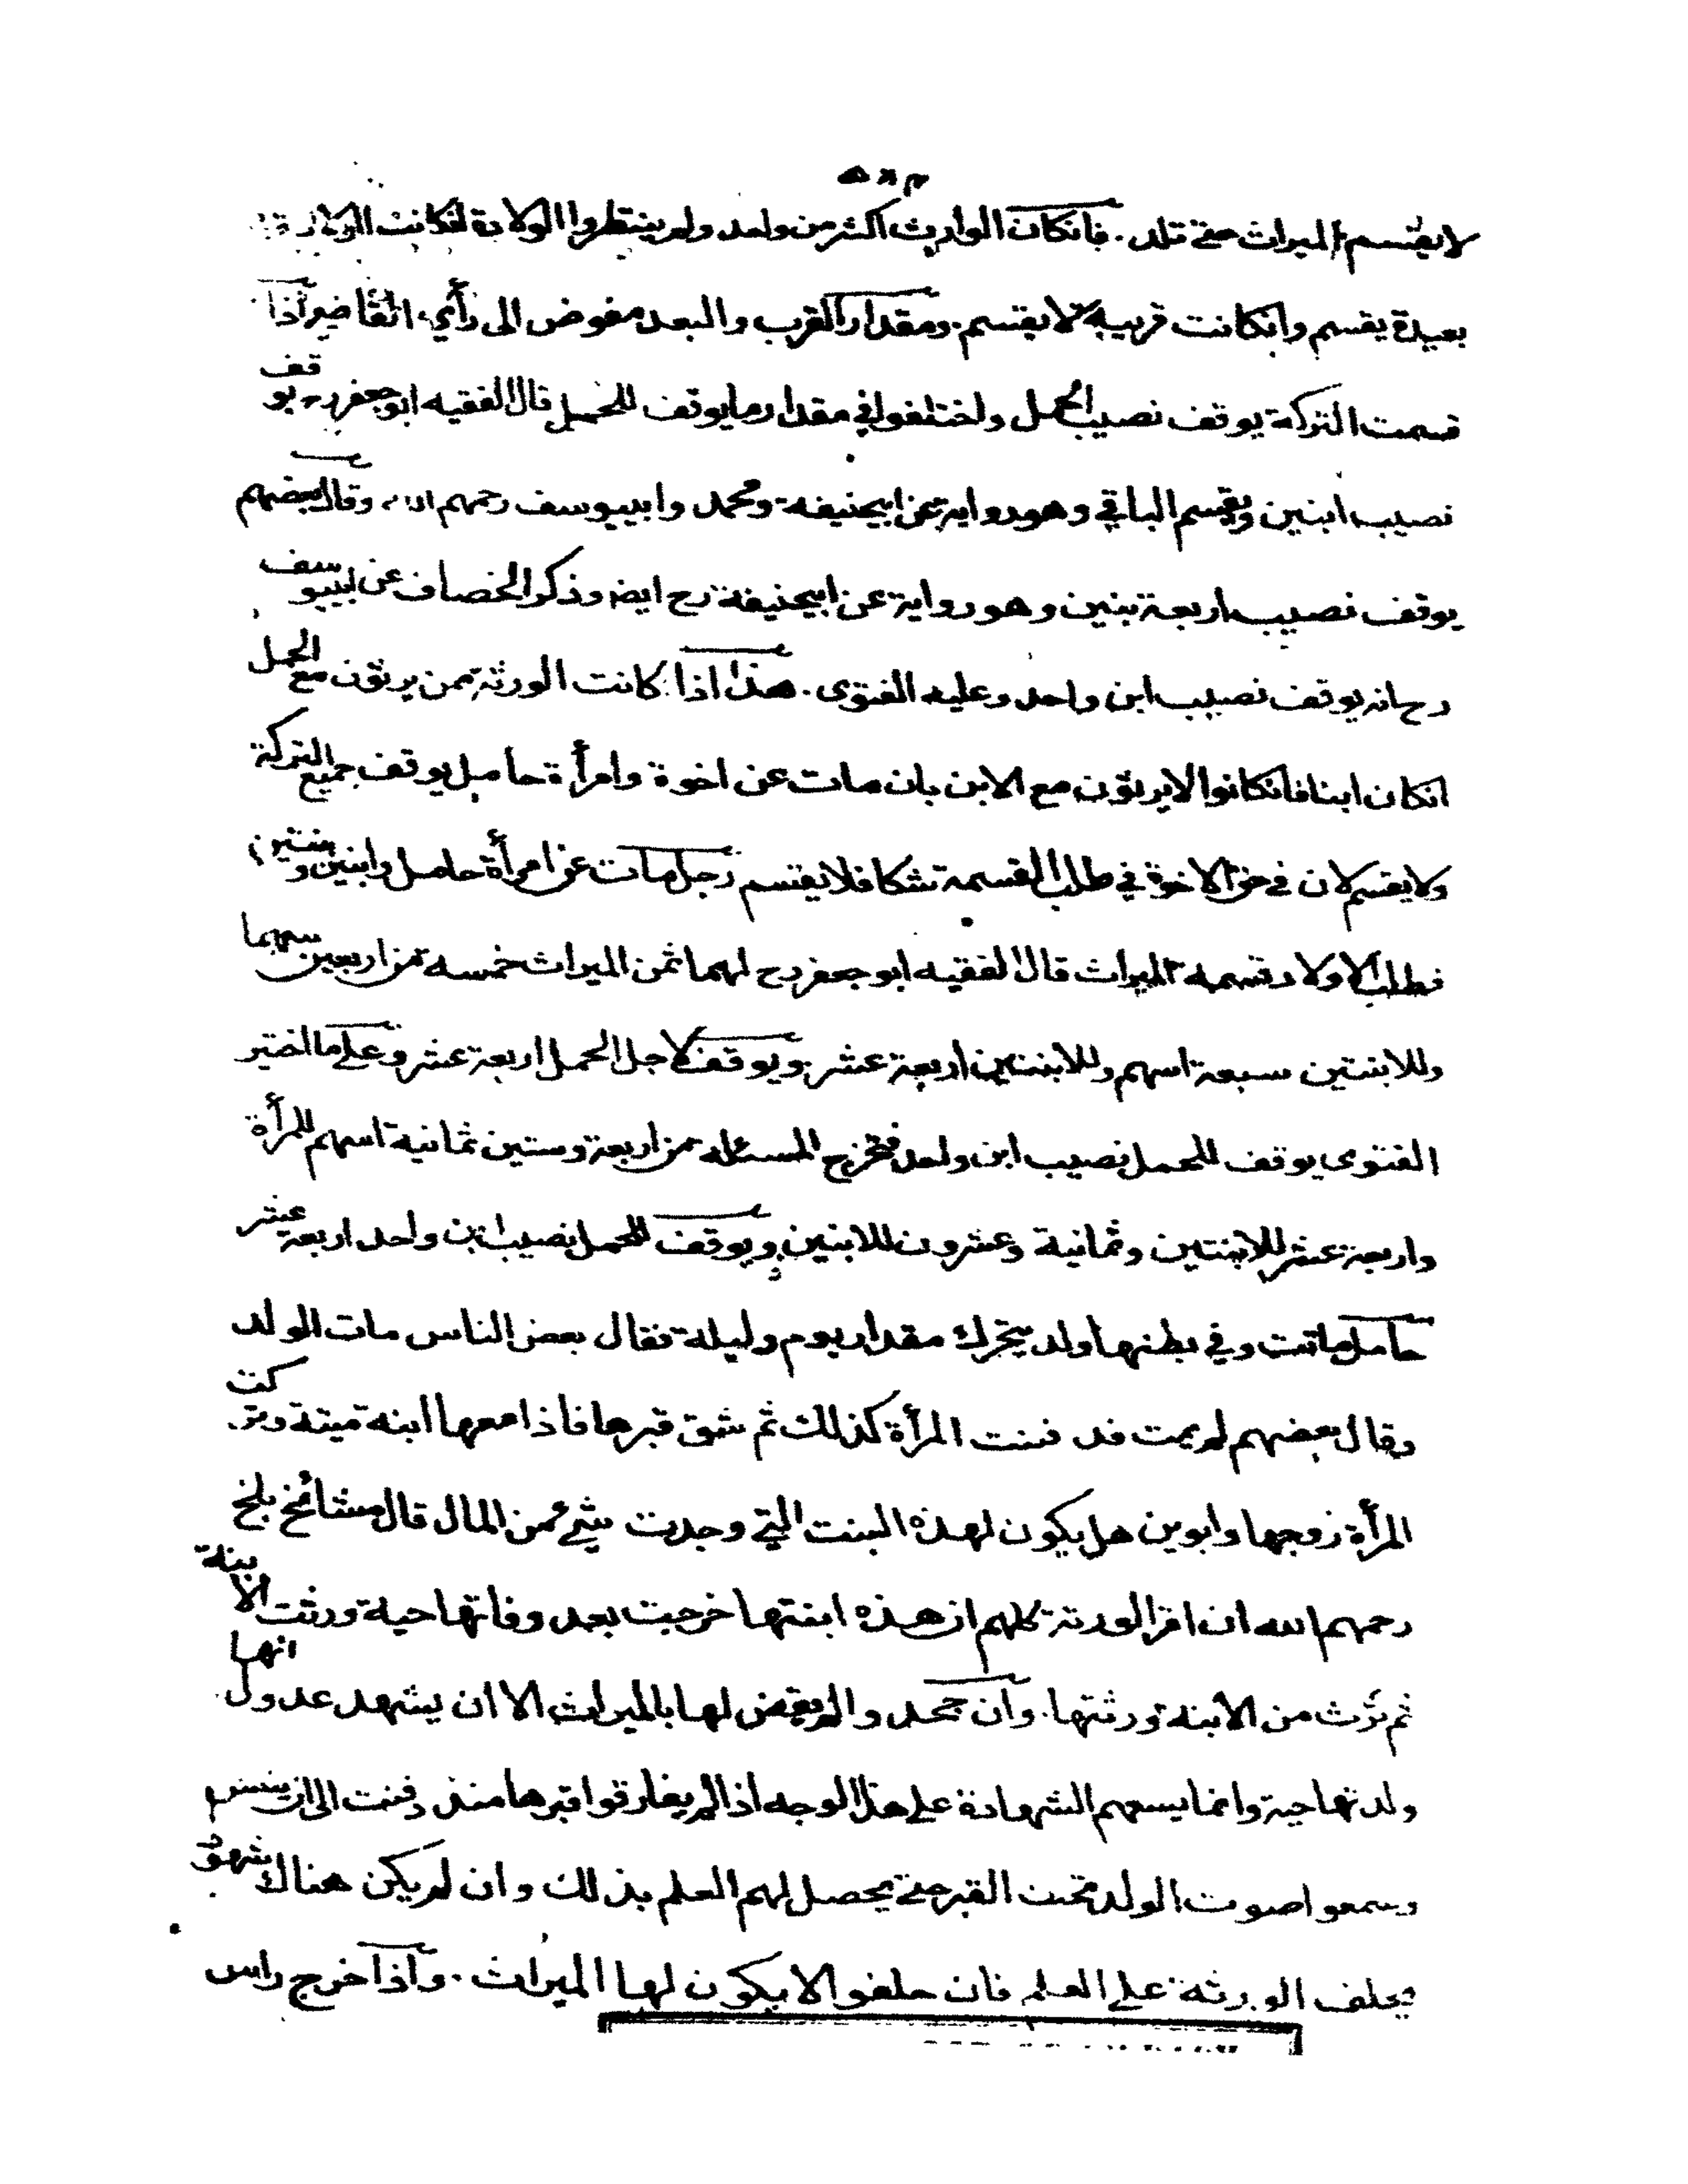 لايقتسم الميراث حتى تلد . فانكان الوارث اكثر من واحد ولم ينتظروا الولادة انكانت الولادة
بعيدة يقسم وانكانت قريبة لا يقتسم . ومقدار القرب والبعد مفوض الى رأي القاضي واذا
قسمت التركة يوقف نصيب الحمل واختلفوا في مقدار ما يوقف للحمل قال الفقيه ابو جعفر رح يوقف
نصيب ابنين ويقسم الباقي وهو رواية عن ابيحنيفة ومحمد وابييوسف رحمهم الله وقال بعضهم
يوقف نصيب اربعة بنين وهو رواية عن ابيحنيفة رح ايضا وذكر الخصاف عن ابييوسف
رح انه يوقف نصيب ابن واحد وعليه الفتوى . هذا اذا كانت الورثة ممن يرثون مع الحمل
انكان ابنا فانكانوا لايرثون مع الابن بان مات عن اخوة وامرأة حامل يوقف جميع التركة
ولا يقسم لان في حق الاخوة في طلب القسمة شكا فلا يقتسم رجل مات عن امرأة حامل وابنين وبنتين
فطلب الاولاد قسمة الميراث قال الفقيه ابو جعفر رح لهما ثمن الميراث خمسة من اربعين سهما
وللابنتين سبعة اسهم وللابنين اربعة عشر ويوقف لاجل الحمل اربعة عشر وعلى ما اختير
الفتوى يوقف للحمل نصيب ابن واحد فتخرج المسئلة من اربعة وستين ثمانية اسهم للمرأة
واربعة عشر للابنتين وثمانية وعشرون للابنين ويوقف للحمل نصيب ابن واحد اربعة عشر
حامل ماتت وفي بطنها ولد يتحرك مقدار يوم وليلة فقال بعض الناس مات الولد
وقال بعضهم لم يمت فدفنت المرأة كذلك ثم شق قبرها فاذا معها ابنة ميتة وتركت
المرأة زوجها وابوين هل يكون لهذه البنت التي وجدت شيء من المال قال مشائخ بلخ
رحمهم الله ان اقر الورثة كلهم ان هذه ابنتها خرجت بعد وفاتها حية ورثت الابنة
ثم ترث من الابنة ورثتها . وان جحدوا لم يقض لها بالميراث الا ان يشهد عدول انها
ولدتها حية وانما يسعهم الشهادة على هذا الوجه اذا لم يفارقوا قبرها منذ دفنت الى ان ينبش
وسمعوا صوت الولد تحت القبر حتى يحصل لهم العلم بذلك وان لم يكن هناك شهود
يحلف الورثة على العلم فان حلفوا لا يكون لها الميراث . واذا خرج راس